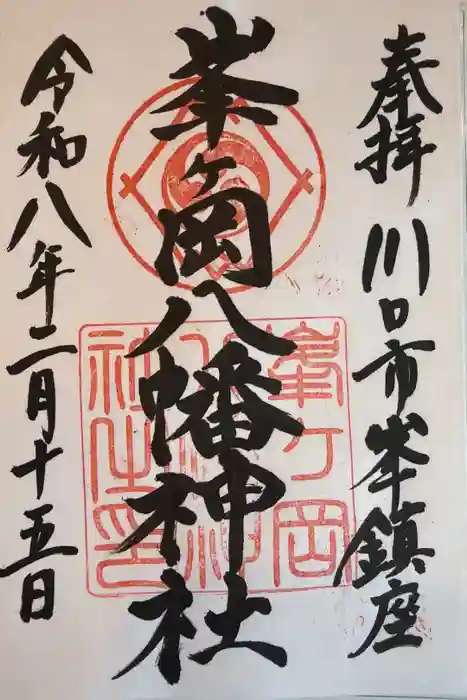 奉拝 川口市峯鎮座
峯ヶ岡八幡神社
峯ヶ岡八幡神社之印
令和八年二月十五日